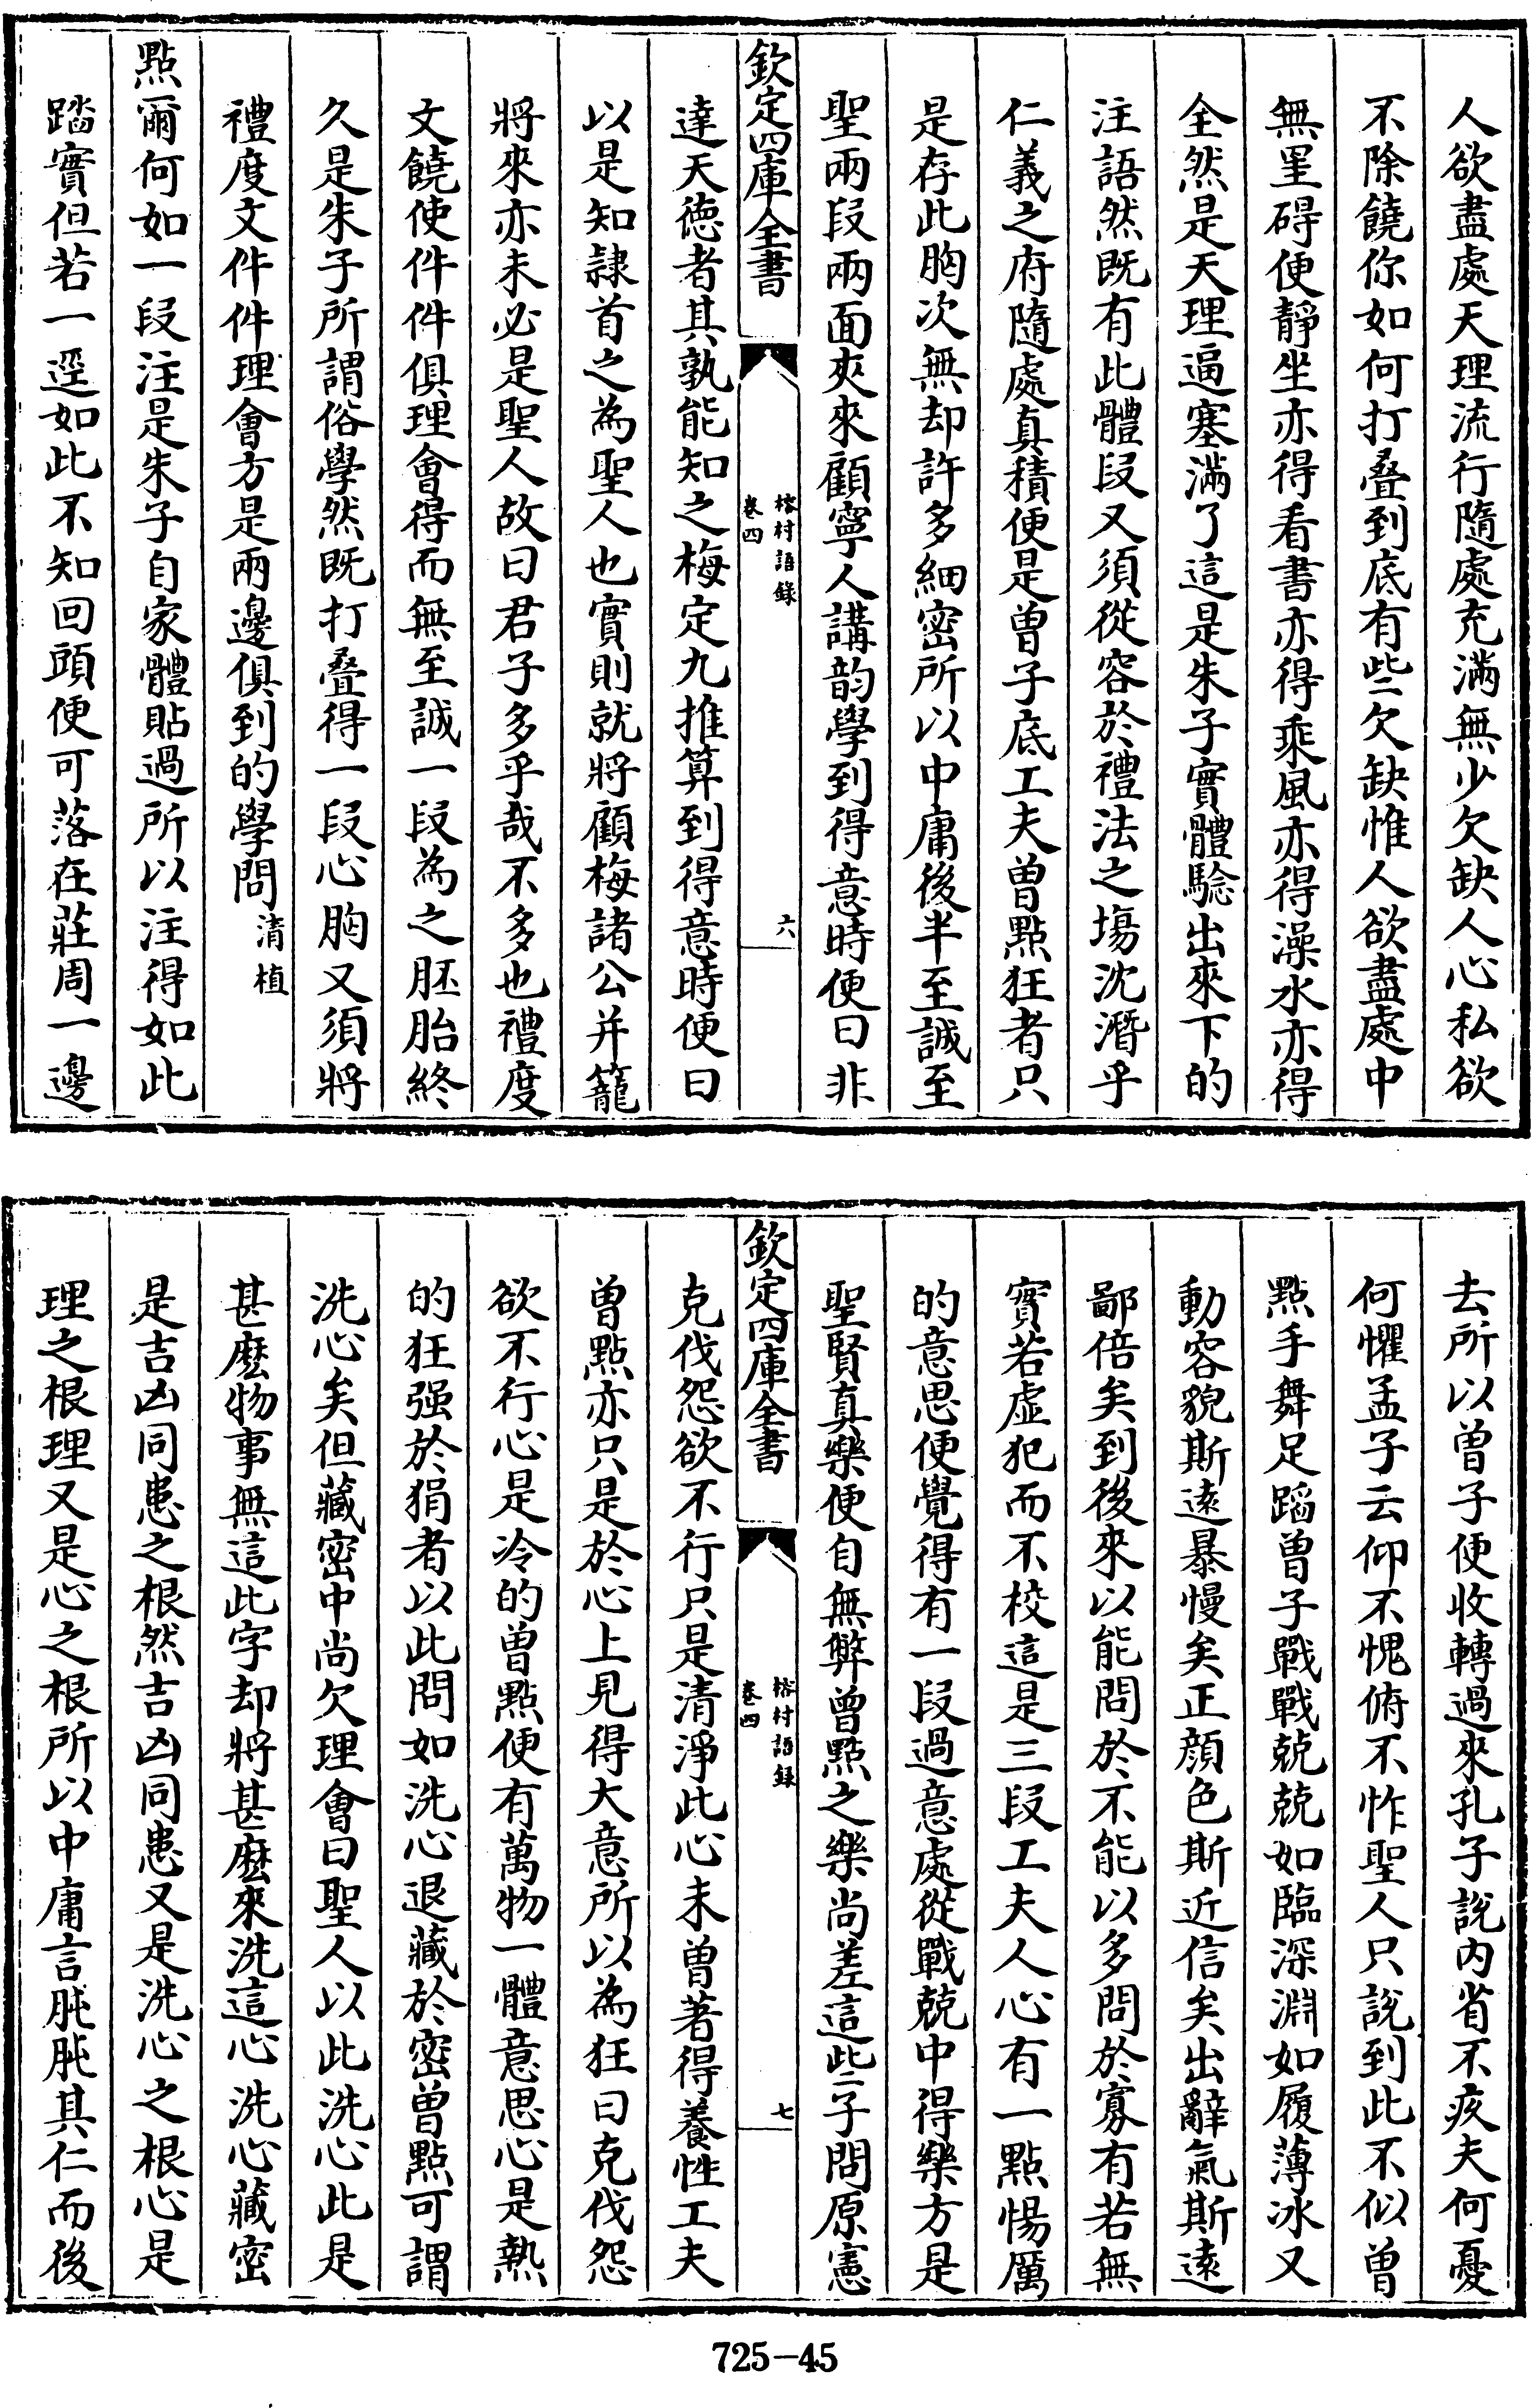 人欲盡處天理流行隨處充滿無少欠缺人心私欲
不除饒你如何打叠到底有些欠缺惟人欲盡處中
無罣碍便靜坐亦得看書亦得乘風亦得澡水亦得
全然是天理逼塞滿了這是朱子實體驗出來下的
注語然既有此體段又須從容於禮法之塲沈潛乎
仁義之府隨處真積便是曾子底工夫曾點狂者只
是存此胸次無却許多細密所以中庸後半至誠至
聖兩段兩面夾來顧寧人講韵學到得意時便曰非
欽定四庫全書
榕村語錄
卷四
六
達天徳者其孰能知之梅定九推算到得意時便曰
以是知隷首之為聖人也實則就將顧梅諸公并籠
將來亦未必是聖人故曰君子多乎哉不多也禮度
文饒使件件俱理會得而無至誠一段為之胚胎終
久是朱子所謂俗學然既打叠得一段心胸又須將
禮度文件件理會方是兩邊俱到的學問清植
點爾何如一段注是朱子自家體貼過所以注得如此
踏實但若一逕如此不知回頭便可落在莊周一邊
去所以曾子便收轉過來孔子說内省不疚夫何憂
何懼孟子云仰不愧俯不怍聖人只說到此不似曾
點手舞足蹈曾子戰戰兢兢如臨深淵如履薄冰又
動容貌斯逺暴慢矣正顔色斯近信矣出辭氣斯逺
鄙倍矣到後來以能問於不能以多問於寡有若無
實若虚犯而不校這是三段工夫人心有一點惕厲
的意思便覺得有一段過意處從戰兢中得樂方是
聖賢真樂便自無弊曾點之樂尚差這些子問原憲
欽定四庫全書
榕村語錄
卷四
七
克伐怨欲不行只是清淨此心未曾著得養性工夫
曾點亦只是於心上見得大意所以為狂曰克伐怨
欲不行心是冷的曾點便有萬物一體意思心是熱
的狂强於狷者以此問如洗心退藏於密曾點可謂
洗心矣但藏密中尚欠理會曰聖人以此洗心此是
甚麽物事無這此字却將甚麽來洗這心洗心藏密
是吉凶同患之根然吉凶同患又是洗心之根心是
理之根理又是心之根所以中庸言肫肫其仁而後
725-45